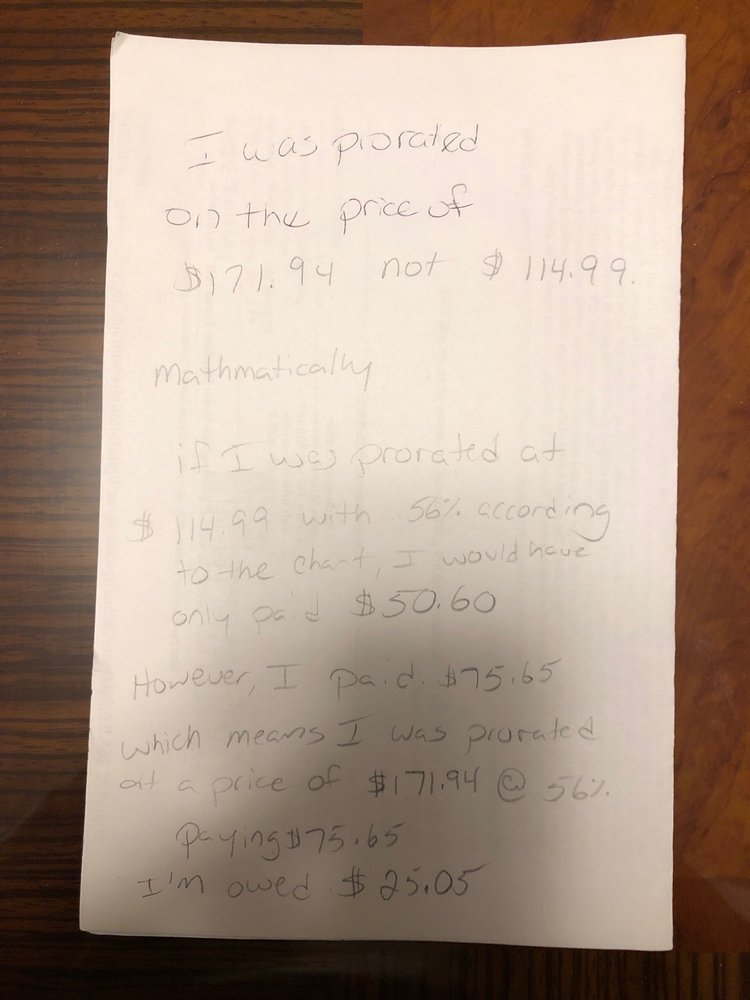 I was prorated
on the price of
$171.94 not $114.99.
Mathmatically
if I was prorated at
$114.99 with 56% according
to the chart, I would have
only paid $50.60
However, I paid $75.65
which means I was prorated
at a price of $171.94 @ 56%
paying $75.65
I'm owed $25.05